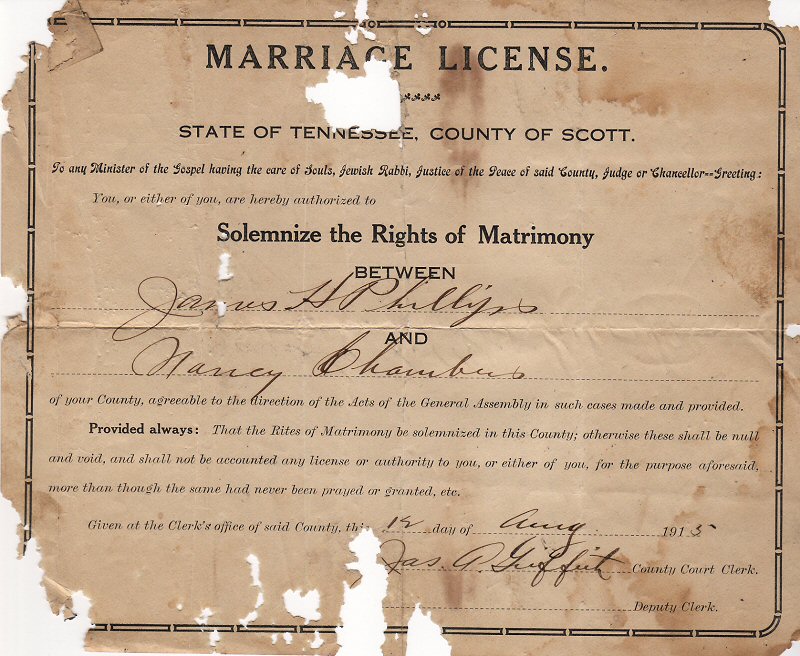 MARRIAGE LICENSE.
STATE OF TENNESSEE, COUNTY OF SCOTT.
To any Minister of the Gospel having the care of Souls, Jewish Rabbi, Justice of the Peace of said County, Judge or Chancellor--Greeting:
You, or either of you, are hereby authorized to
Solemnize the Rights of Matrimony
BETWEEN
James H Phillips
AND
Nancy Chambers
of your County, agreeable to the direction of the Acts of the General Assembly in such cases made and provided.
Provided always: That the Rites of Matrimony be solemnized in this County; otherwise these shall be null
and void, and shall not be accounted any license or authority to you, or either of you, for the purpose aforesaid,
more than though the same had never been prayed or granted, etc.
Given at the Clerk's office of said County, this 12 day of Aug 1915
Jas. A. Griffith County Court Clerk.
Deputy Clerk.